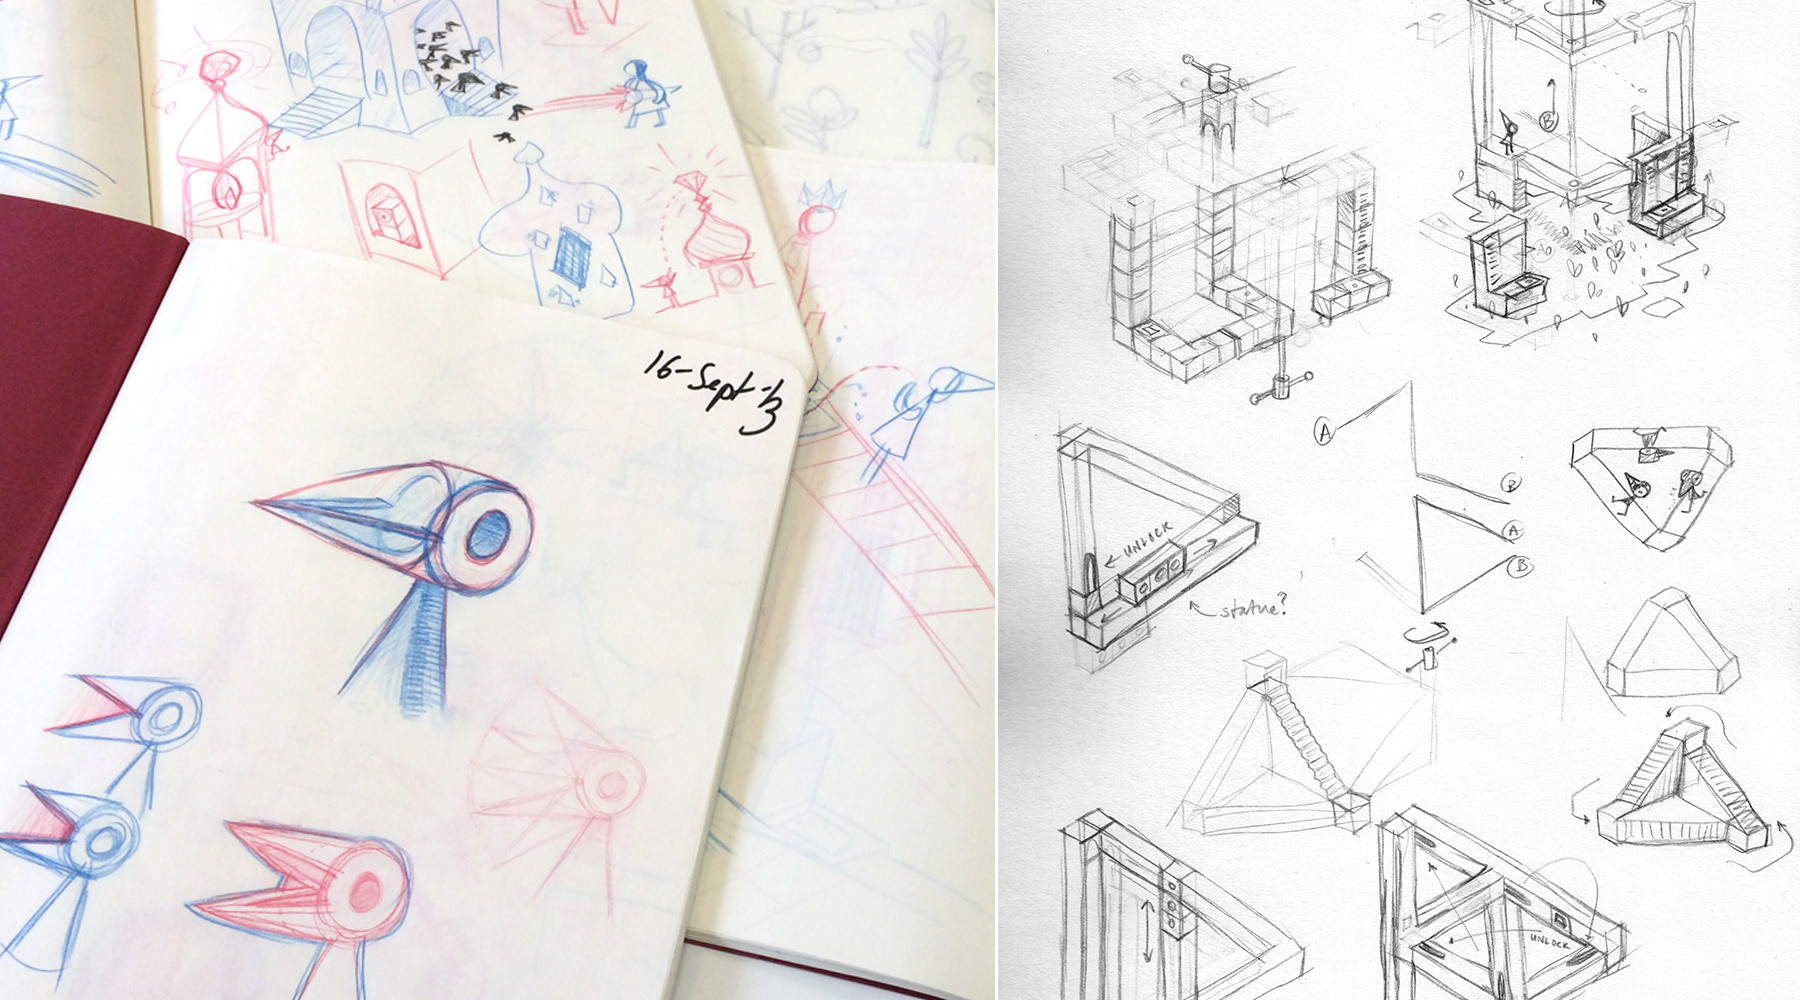 16-Sept-13
B
A
B
UNLOCK
A
B
statue?
UNLOCK